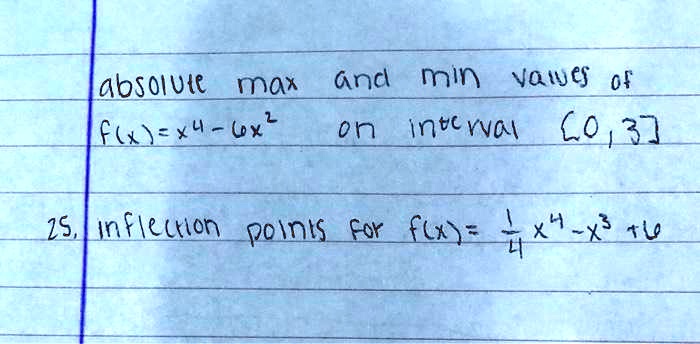 absolute max and min values of
f(x)=x⁴-6x² on interval [0,3]
25. inflection points for f(x)= 1/4 x⁴-x³+6